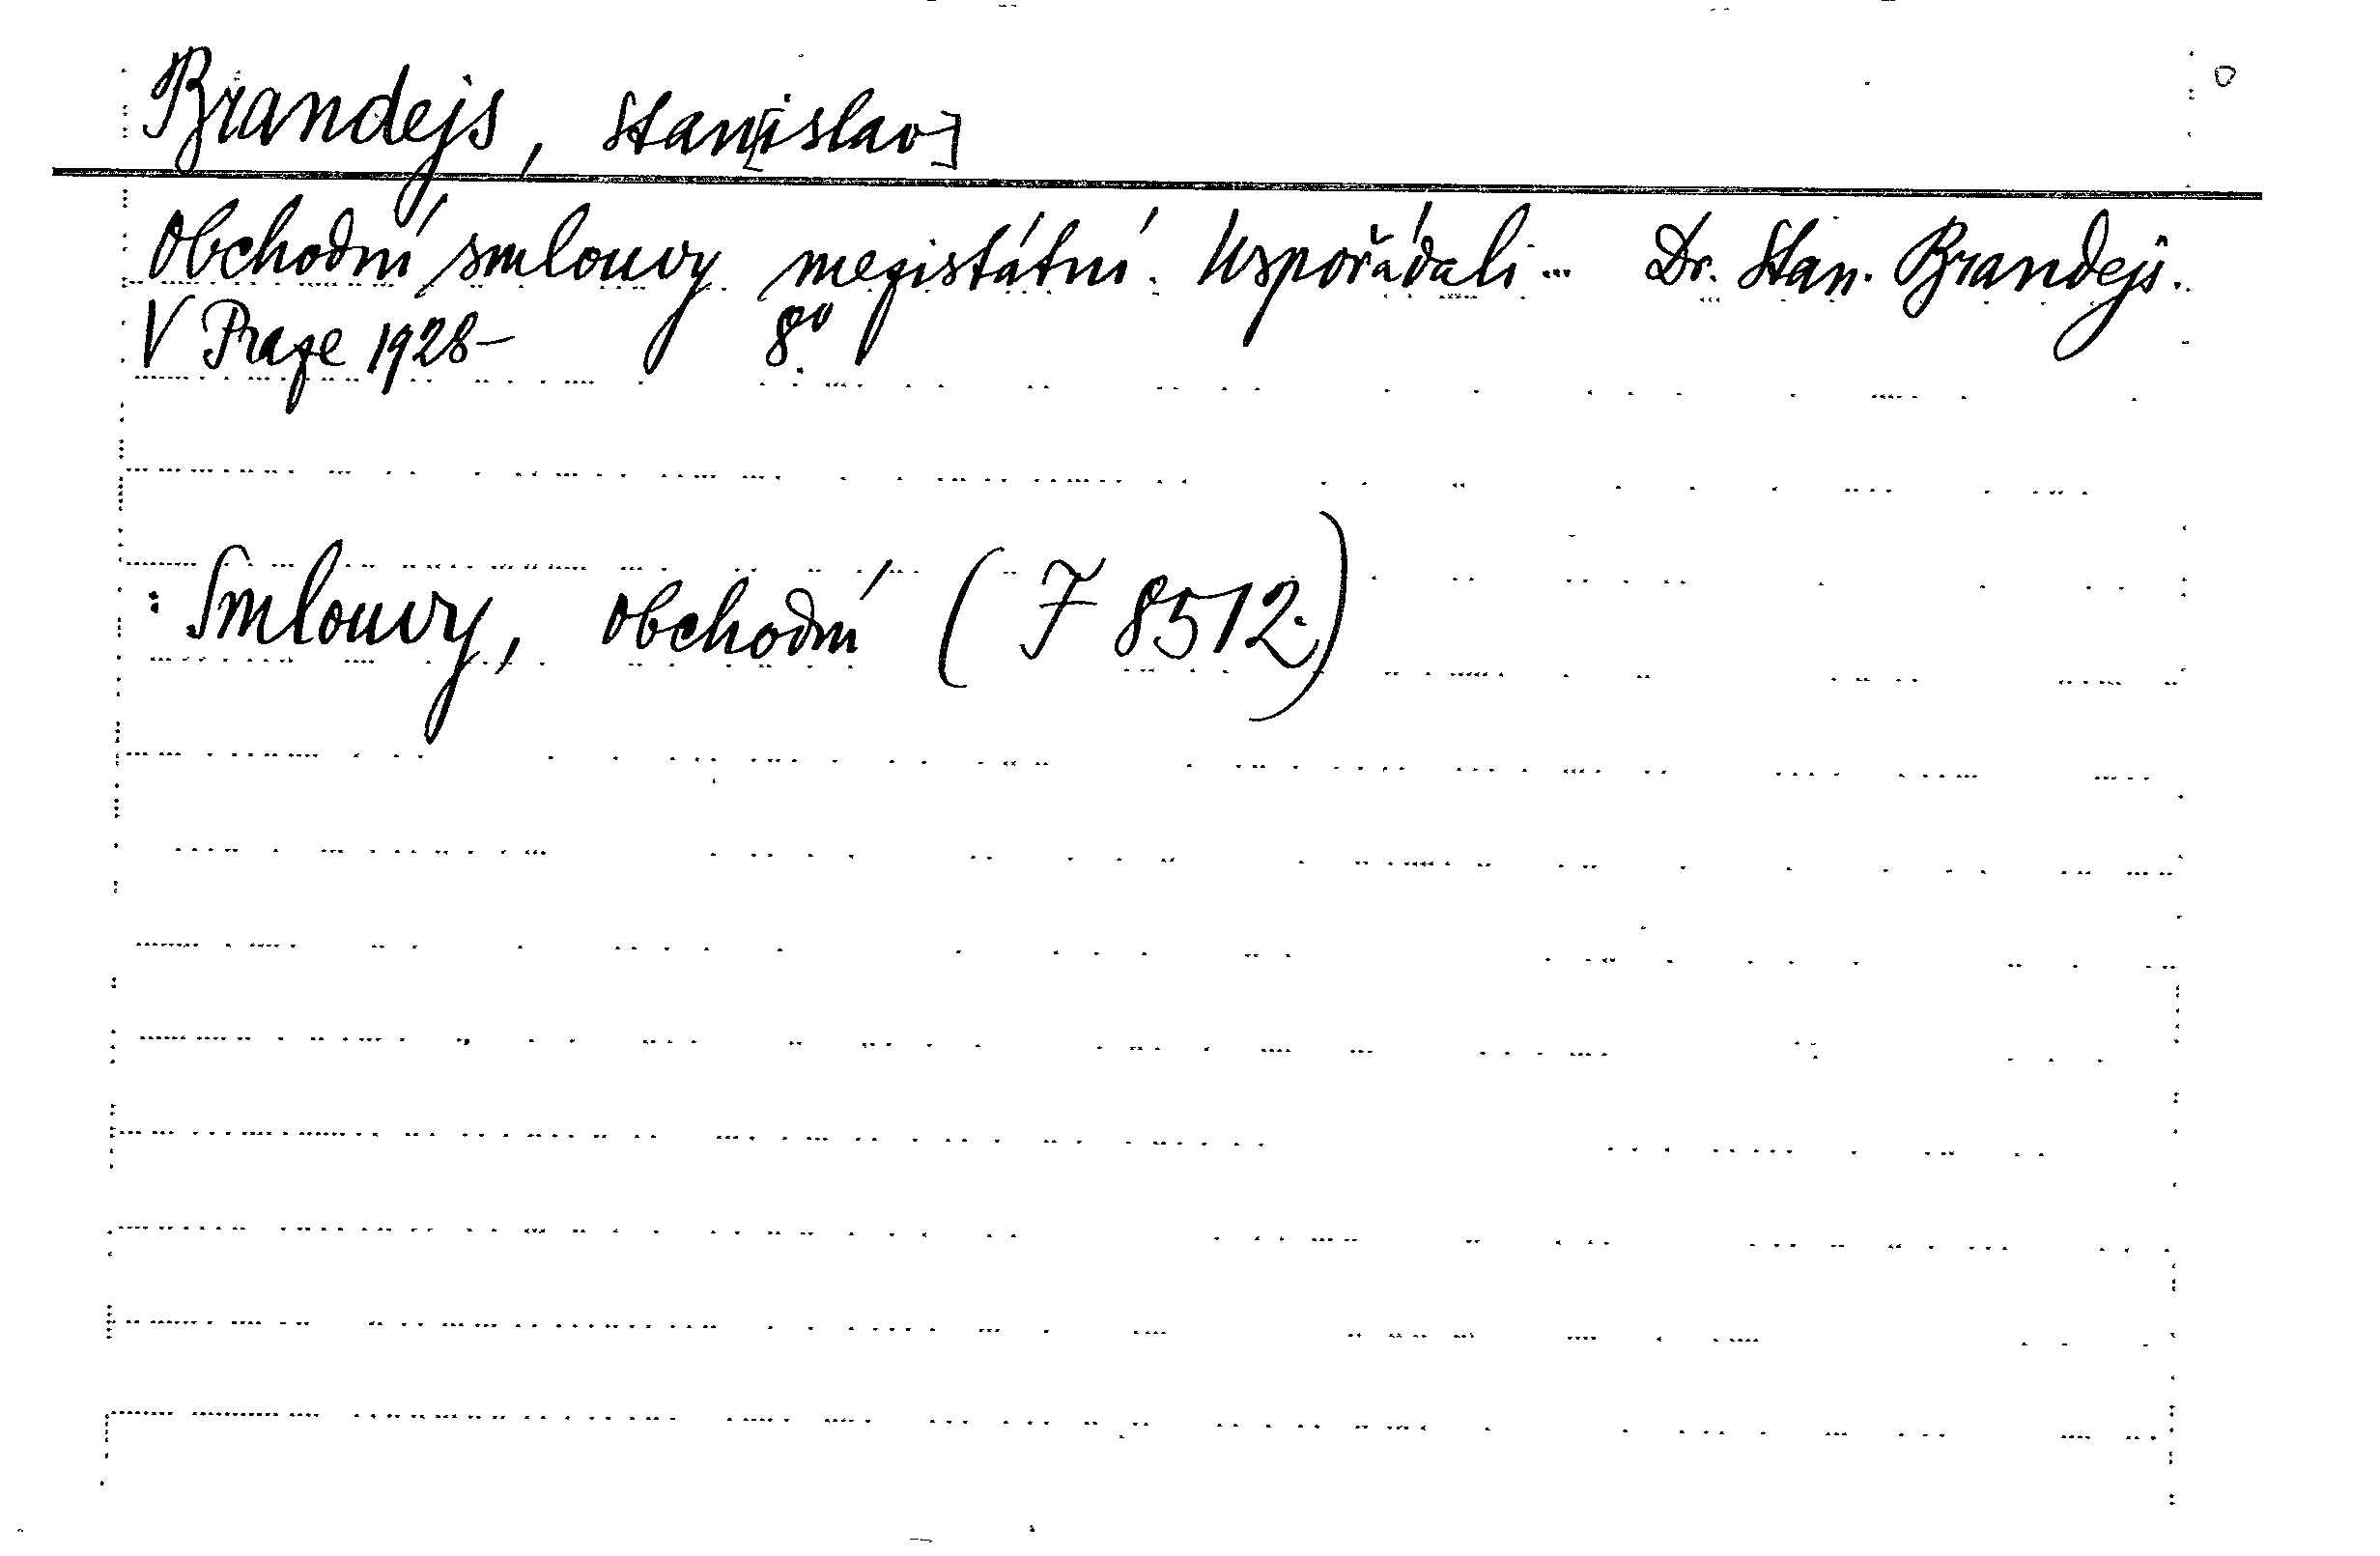 Brandejs, Stan[islav]
Obchodní smlouvy mezistátní. Uspořádali... Dr. Stan. Brandejs.
V Praze 1928- 8°.
: Smlouvy, obchodní (F 8512.)